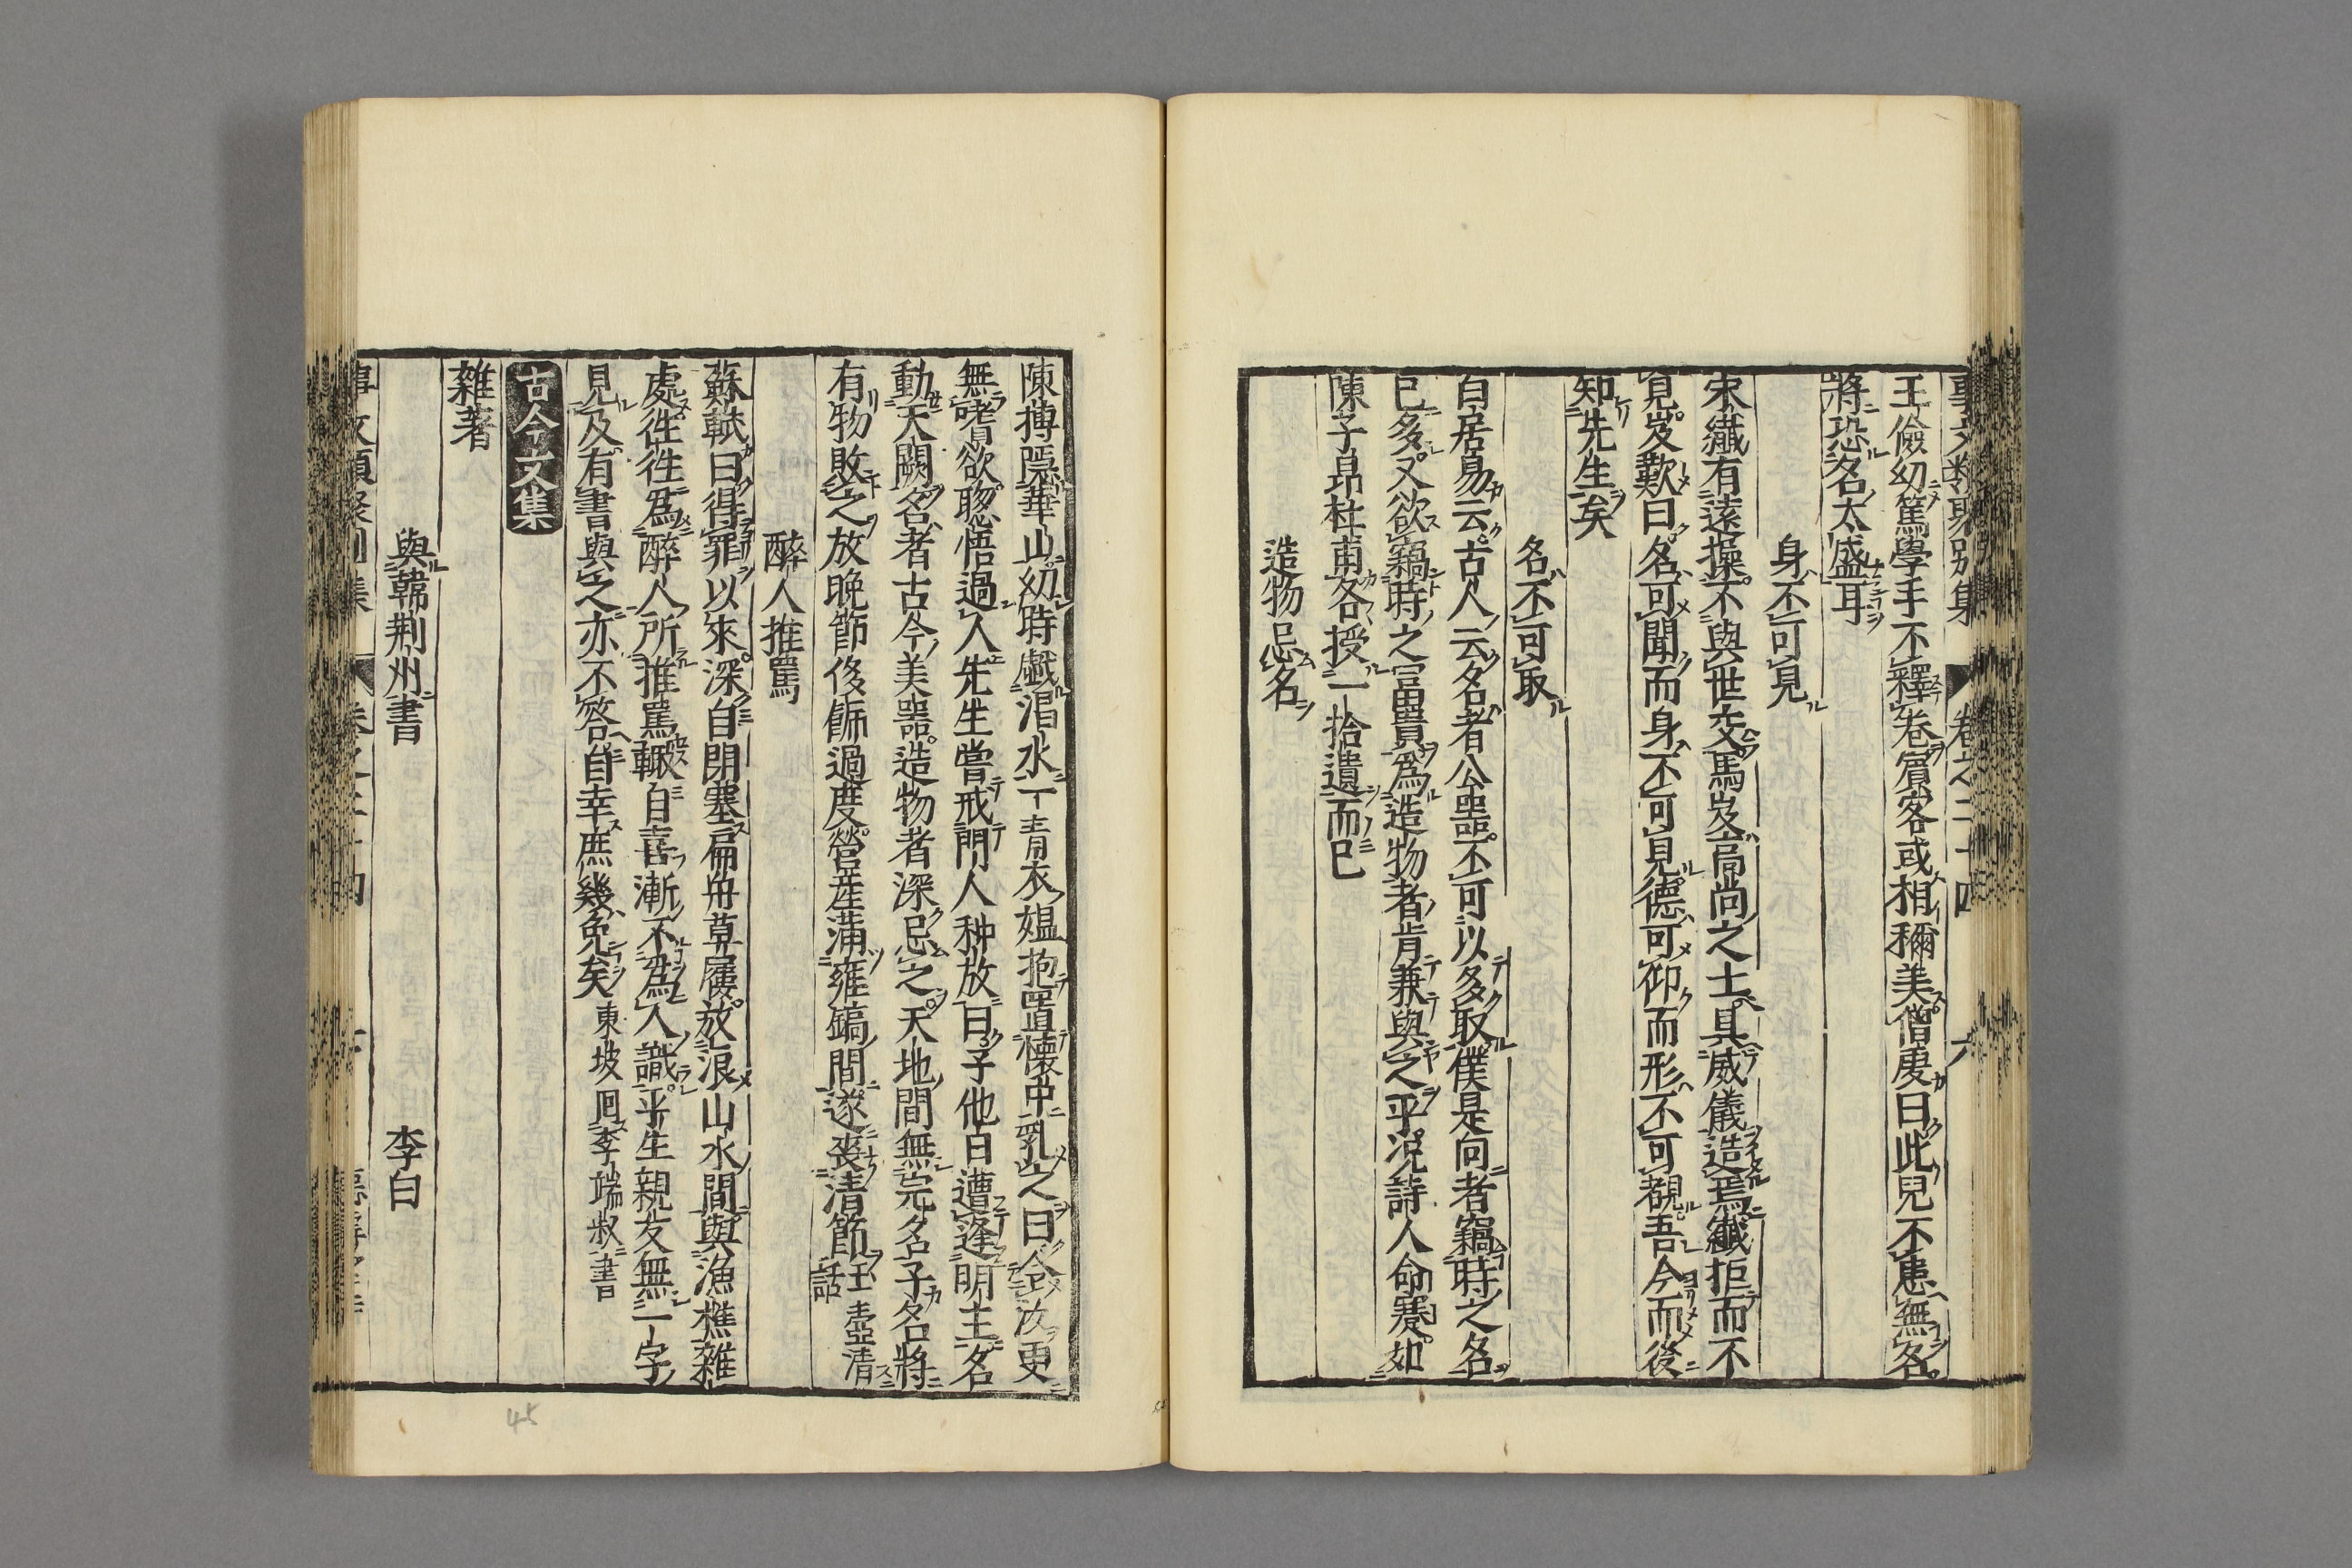 事文類聚別集 卷之二十四 六
王儉幼篤學手不釋卷賓客或相稱美僧虔曰此兒不患無名
將恐名太盛耳
身不可見
宋纖有遠操不與世交馬岌高尚之士具威儀造焉纖拒而不
見岌歎曰名可聞而身不可見德可仰而形不可覩吾今而後
知先生矣
名不可取
白居易云古人云名者公噐不可以多取僕是何者竊時之名
已多又欲竊時之富貴爲造物者肯兼與之乎况詩人命蹇如
陳子昻杜甫各授一拾遺而已
造物忌名
陳摶隱華山幼時戲渦水一青衣媼抱置懷中乳之曰令汝更
無嗜欲聦悟過人先生嘗戒門人种放曰子他日遭逢明主名
動天闕名者古今美噐造物者深忌之天地間無完名子名將
有物敗之放晚節侈飾過度營産滿雍鎬間遂喪清節玉壺清話
醉人推罵
蘇軾曰得罪以來深自閉塞扁舟草屨放浪山水間與漁樵雜
處徃徃爲醉人所推罵輙自喜漸不爲人識平生親友無一字
見及有書與之亦不答自幸庶幾免矣東坡囬李端叔書
古今文集
雜著
與韓荆州書 李白
45